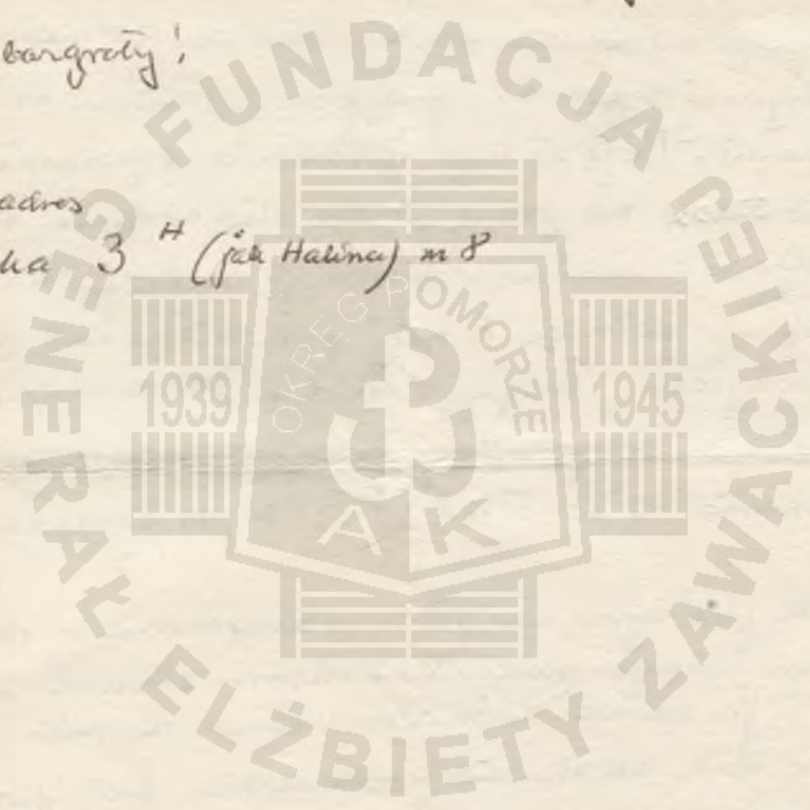 bazgroły!
adres
ka 3 H (jak Halina) m 8
FUNDACJA
GENERAŁ ELŻBIETY ZAWACKIEJ
OKRĘG POMORZE
1939
1945
A K